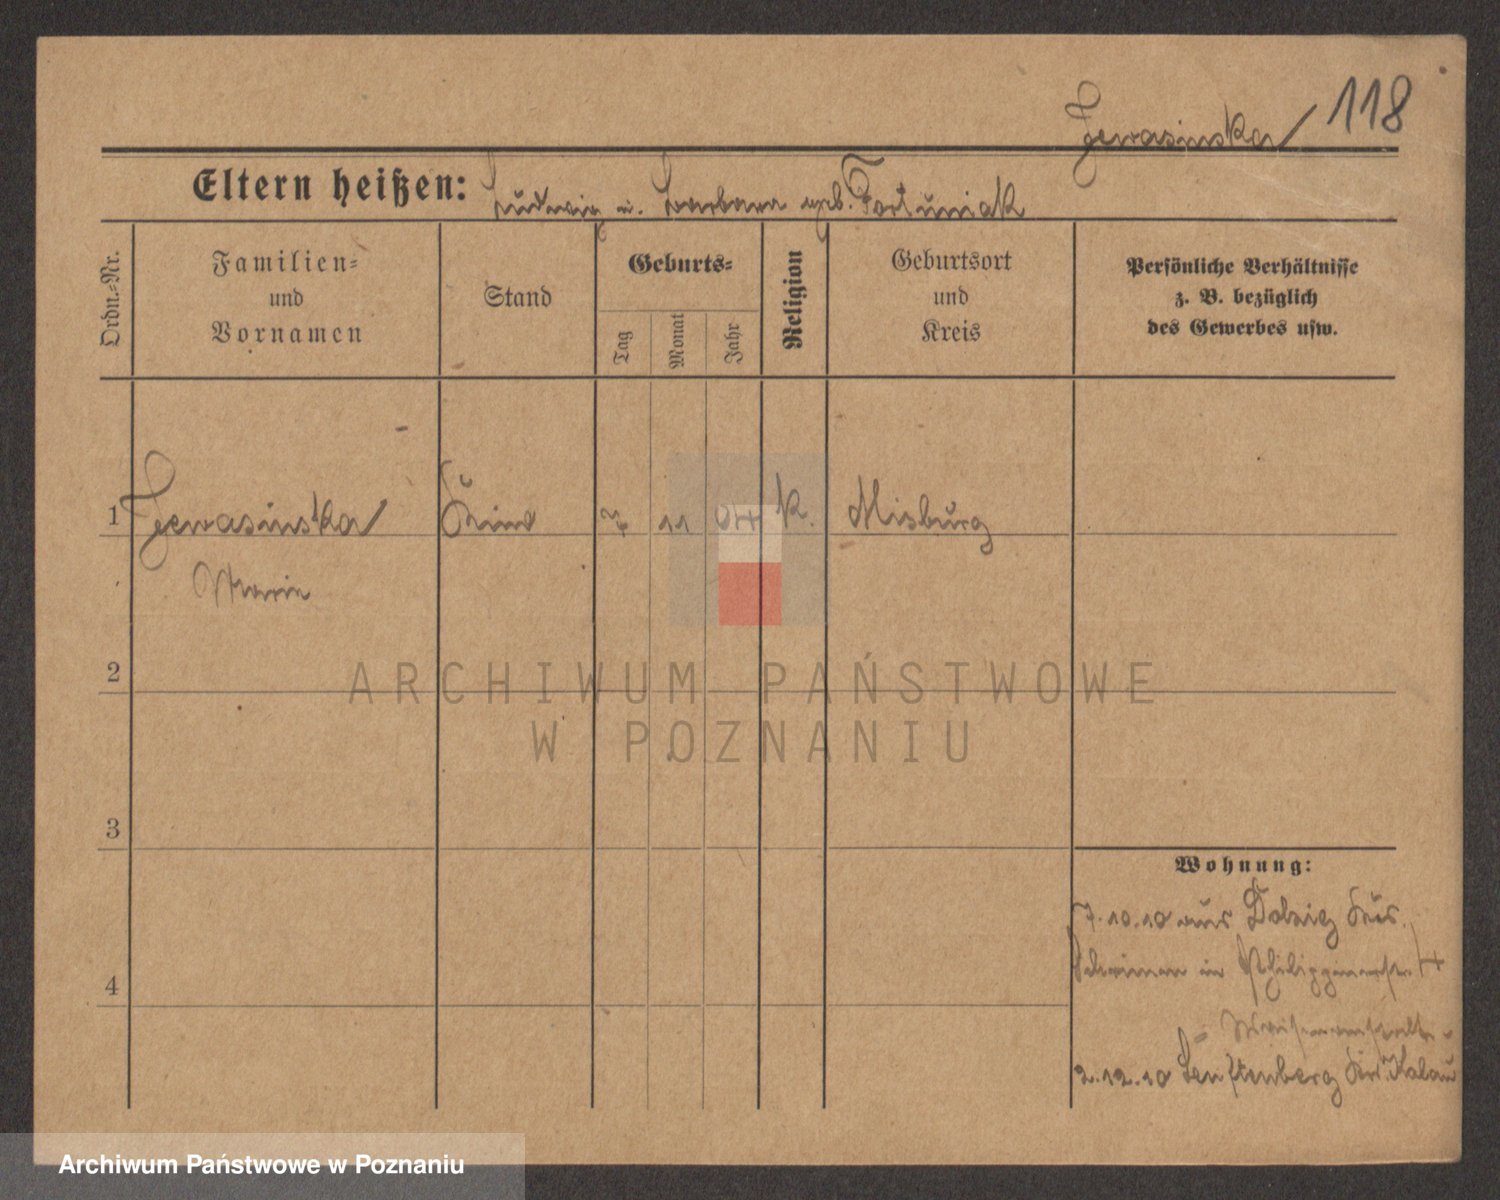 118
Jerasinska
Eltern heißen: Ludwig u. Barbara geb. Fortuniak
Ordn.-Nr.
Familien-
und
Vornamen
Stand
Geburts-
Tag
Monat
Jahr
Religion
Geburtsort
und
Kreis
Persönliche Verhältnisse
z. B. bezüglich
des Gewerbes usw.
1 Jerasinska Kind 7 11 04 K. Misburg
Maria
2
3
4
Wohnung:
7.10.10 aus Dolzig Kreis
Schrimm in
Waisenanstalt.
2.12.10 Senftenberg Kr. Kalau
ARCHIWUM PAŃSTWOWE
W POZNANIU
Archiwum Państwowe w Poznaniu